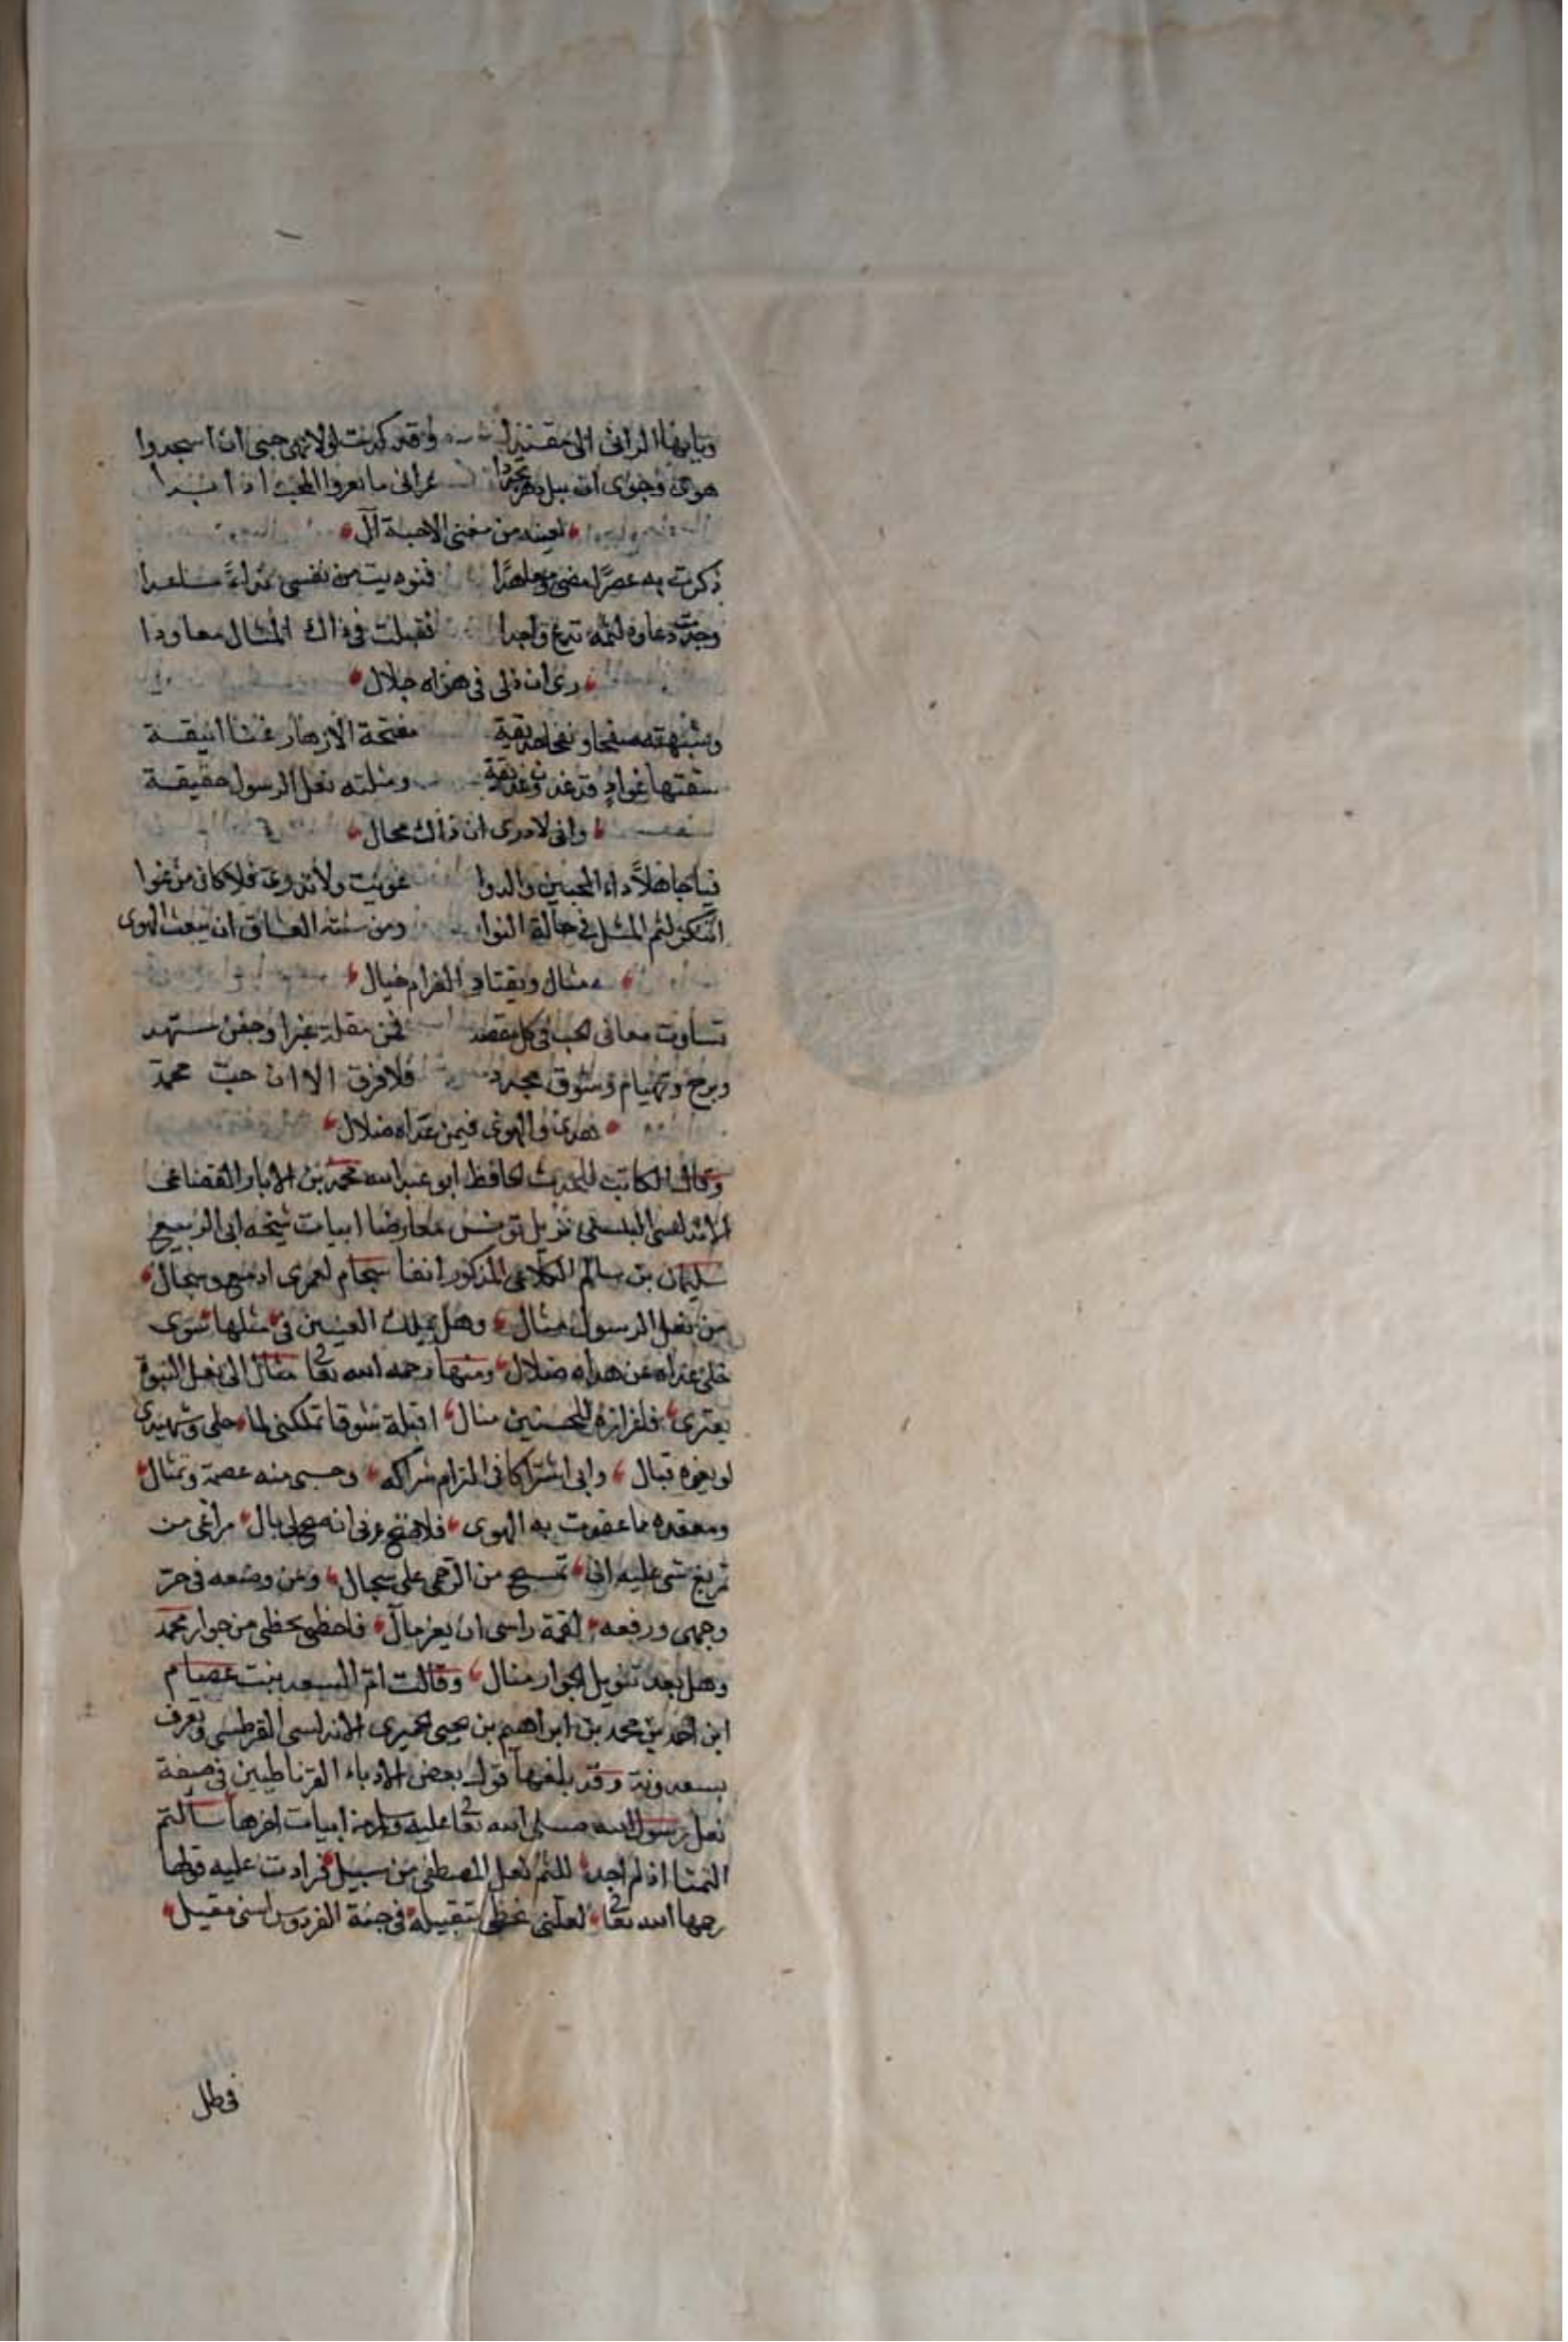 ويايها الرائى الى مقتنيه وقد كدت لولا نهى حبى ان اسجدوا
هوى وجوى ان يبل دهر يجددا عرانى ما يعروا المحب اذا بدا
لعينه من مغنى الاحبة آل
ذكرت به عصرا مضى ومعاهدا فنوديت من نفسى نداء مساعدا
وجدت دعاوه لثمه تدع واجدا فقبلت فى ذاك المثال معاودا
رى ان ذلى فى هواه جلال
وشبهته صفحا ونفحا حديقة مفتحة الازهار غنا انيقة
سقتها غواد قد غدت وغديقة ومثلته نعل الرسول حقيقة
وانى لادرى ان ذاك محال
فيا جاهلا داء المحبين والدوا غويت ولا تدرى فلا كان من غوا
اتنكر لثم المثل فى حالة النوا ومن سنة العشاق ان يبعث الهوى
مثال ويقتاد الغرام خيال
تساوت معانى الحب فى كل مقصد فمن مقلة عبرا وجفن مسهد
وبرح وتهيام وشوق مجدد فلا فرق الا ان حب محمد
هدى والهوى فيمن عداه ضلال
وقال الكاتب المحدث الحافظ ابو عبد الله محمد بن الابار القضاعى
الاندلسى البلنسى نزيل تونس معارضا ابيات شيخه ابى الربيع
سليمان بن سالم الكلاعى المذكور انفا سجام لعمرى ادمع وسجال
من نعل الرسول مثال وهل يملك العينين فى مثلها سوى
خلى عداه عن هداه ضلال ومنها رحمه الله تعا مثال الى نعل النبوة
يعترى فلفرازه للمحسنين منال اقبله شوقا تملكنى لما حلى وشهيدى
لو يفوه قبال وابى اشتراكا فى الزام شراكه وحسبى منه عصمة وثمال
ومعقده ما عقدت به الهوى فلا فسخ عرنى انه صح لى بال مراغى من
تمريغ شى عليه انى تسبح من الرحمى على سجال ومن وضعه فى حر
وجهى ورفعه لقمة راسى ان يعز مآل فاحظى بحظى من جوار محمد
وهل بعد تنويل الجوار منال وقالت ام السعد بنت عصام
ابن احمد بن محمد بن ابراهيم بن يحيى الحميرى الاندلسى القرطبى وتعرف
بسعدونة وقد بلغها قول بعض الادباء الغرناطيين فى صفة
نعل رسول الله صلى الله تعا عليه وسلم من ابيات اخرها سألثم
التمثا اذ لم اجد للثم نعل المصطفى من سبيل فزادت عليه قولها
رحمها الله تعا لعلنى تحظى بتقبيله فى جنة الفردوس اسنى مقيل
فى ظل